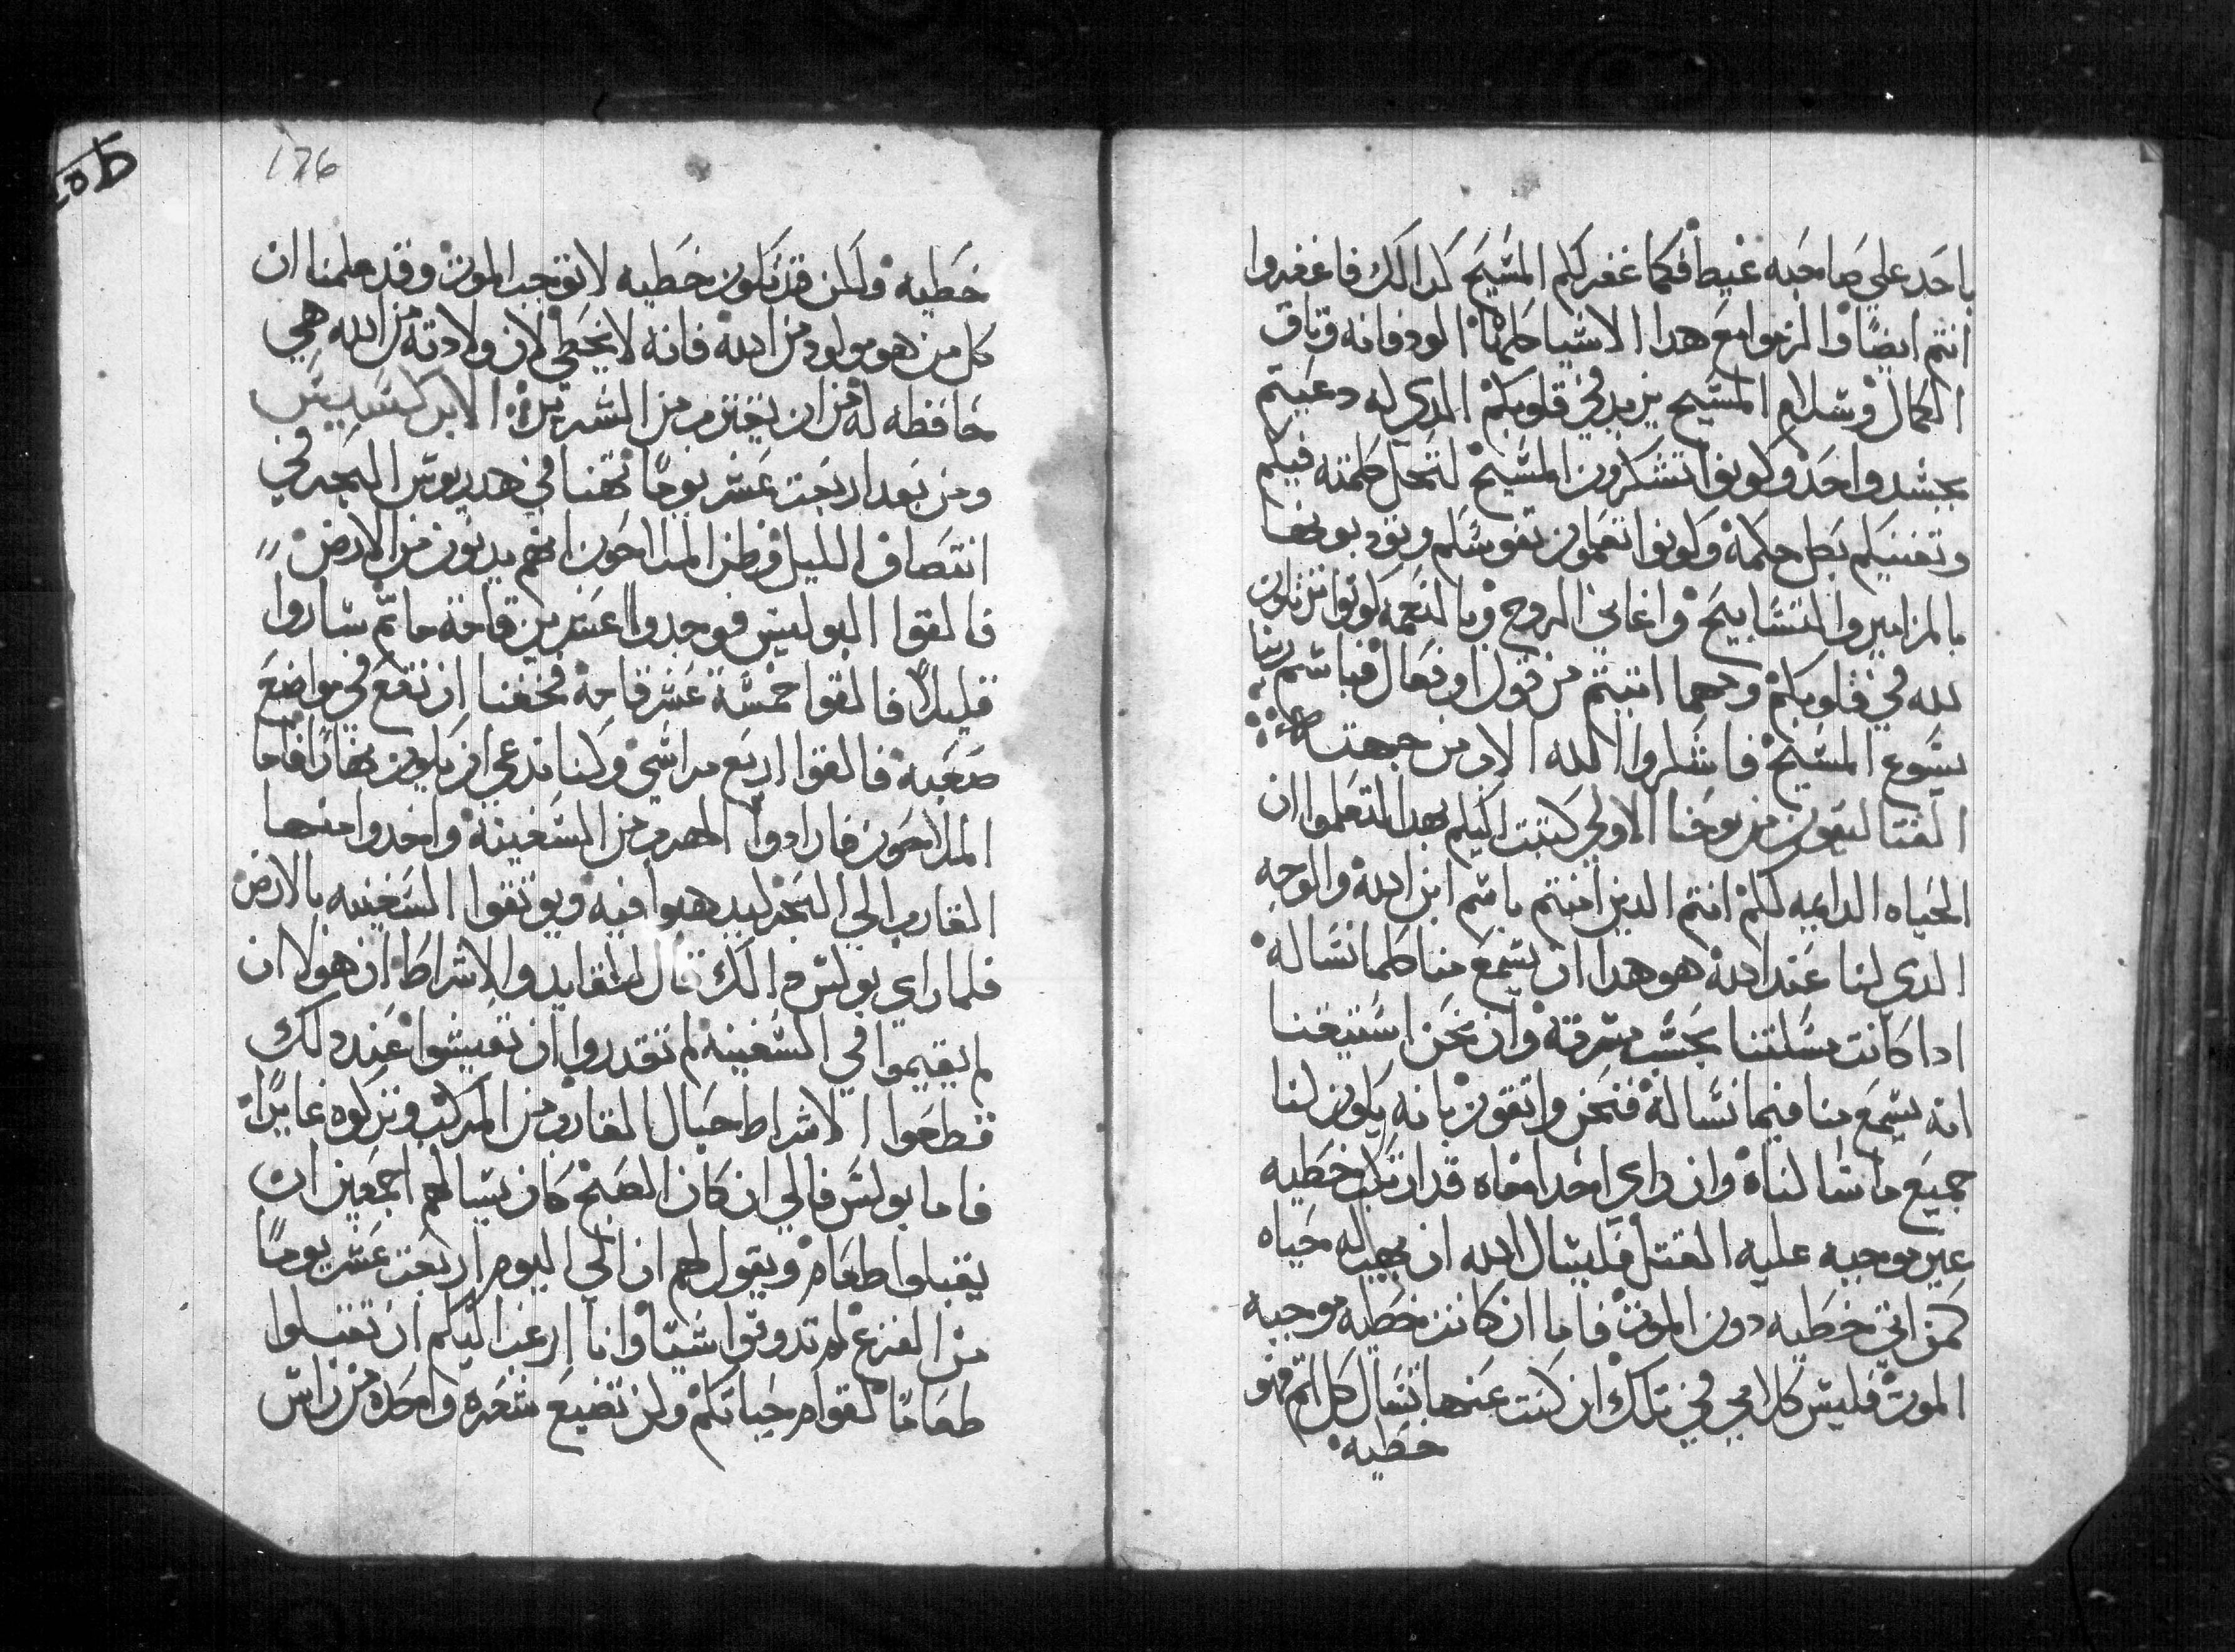 ياحد علي صاحبه غيظا فكما غفر لكم المسيح كدالك فاغفروا
انتم ايضا والزموا مع هدا الاشيا كلها الود فانه وتاق
الكمال وسلام المسيح يزيد في قلوبكم الدي له دعيتم
بجسد واحد وكونوا تشكرون المسيح لتحل كلمته فيكم
وتغنيكم بكل حكمة وكونوا تعلمون نفوسكم وتودبونها
بالمزامير والتسابيح واغاني الروح وبالنعمه كونوا ترتلون
لله في قلوبكم ومهما اتيتم من قول او فعال فباسم ربنا
يسوع المسيح فاشكروا الله الاب من جهته
القتاليقون من يوحنا الاولي كتبت اليكم بهدا لتعلموا ان
الحياه الدايمه لكم انتم الدين امنتم باسم ابن الله والوجه
الدي لنا عند الله هو هدا ان يسمع منا كلما نساله
ادا كانت مسلتنا بحسب مسرته وان نحن استيقنا
انه يسمع منا فيما نساله فنحن واتقون بانه يكون لنا
جميع ما سالناه وان راي احدا اخاه قد ارتكب خطيه
غير موجبه عليه القتل فليسال الله ان يهب له حياه
كمن اتي خطيه دون الموت فاما ان كانت خطيه موجبه
الموت فليس كلامي في تلك ان كنت عنها تسال كل اتم فهو
خطيه
176
خطيه ولكن قد تكون خطيه لا توجب الموت وقد علمنا ان
كل من هو مولود من الله فانه لا يخطي لان ولادته من الله هي
حافظه له من ان يقترم من الشرير الابركسيس
ومن بعد اربعت عشر يوما تهنا في هدريوس البحر في
انتصاف الليل وظن الملاحون انهم يدنون من الارض
فالقوا البوليس فوجدوا عشرين قامة ما تم ساروا
قليلا فالقوا خمسة عشر قامة فخفنا ان نقع في مواضع
صعبه فالقوا اربع مراسي وكنا ندعي ان يكون نهارا فاما
الملاحون فارادوا الهرب من السفينة واحدوا منها
القارب الي البحر ليدهبوا فيه ويوتقوا السفينه بالارض
فلما راي بولس دالك قال للقايد والاشراط ان هولا ان
لم يقيموا في السفينه لم تقدروا ان تعيشوا عند دلك
قطعوا الاشراط حبال القارب من المركب وتركوه غايرا
فاما بولس فالي ان كان الصبح كان يسالهم اجمعين ان
يقبلوا طعام ويقول لهم ان الي اليوم اربعت عشر يوما
من الفزع لم تدوقوا شيا وانا ارغب اليكم ان تقبلوا
طعاما لقوام حياتكم ولن تضيع شعره واحده من راس